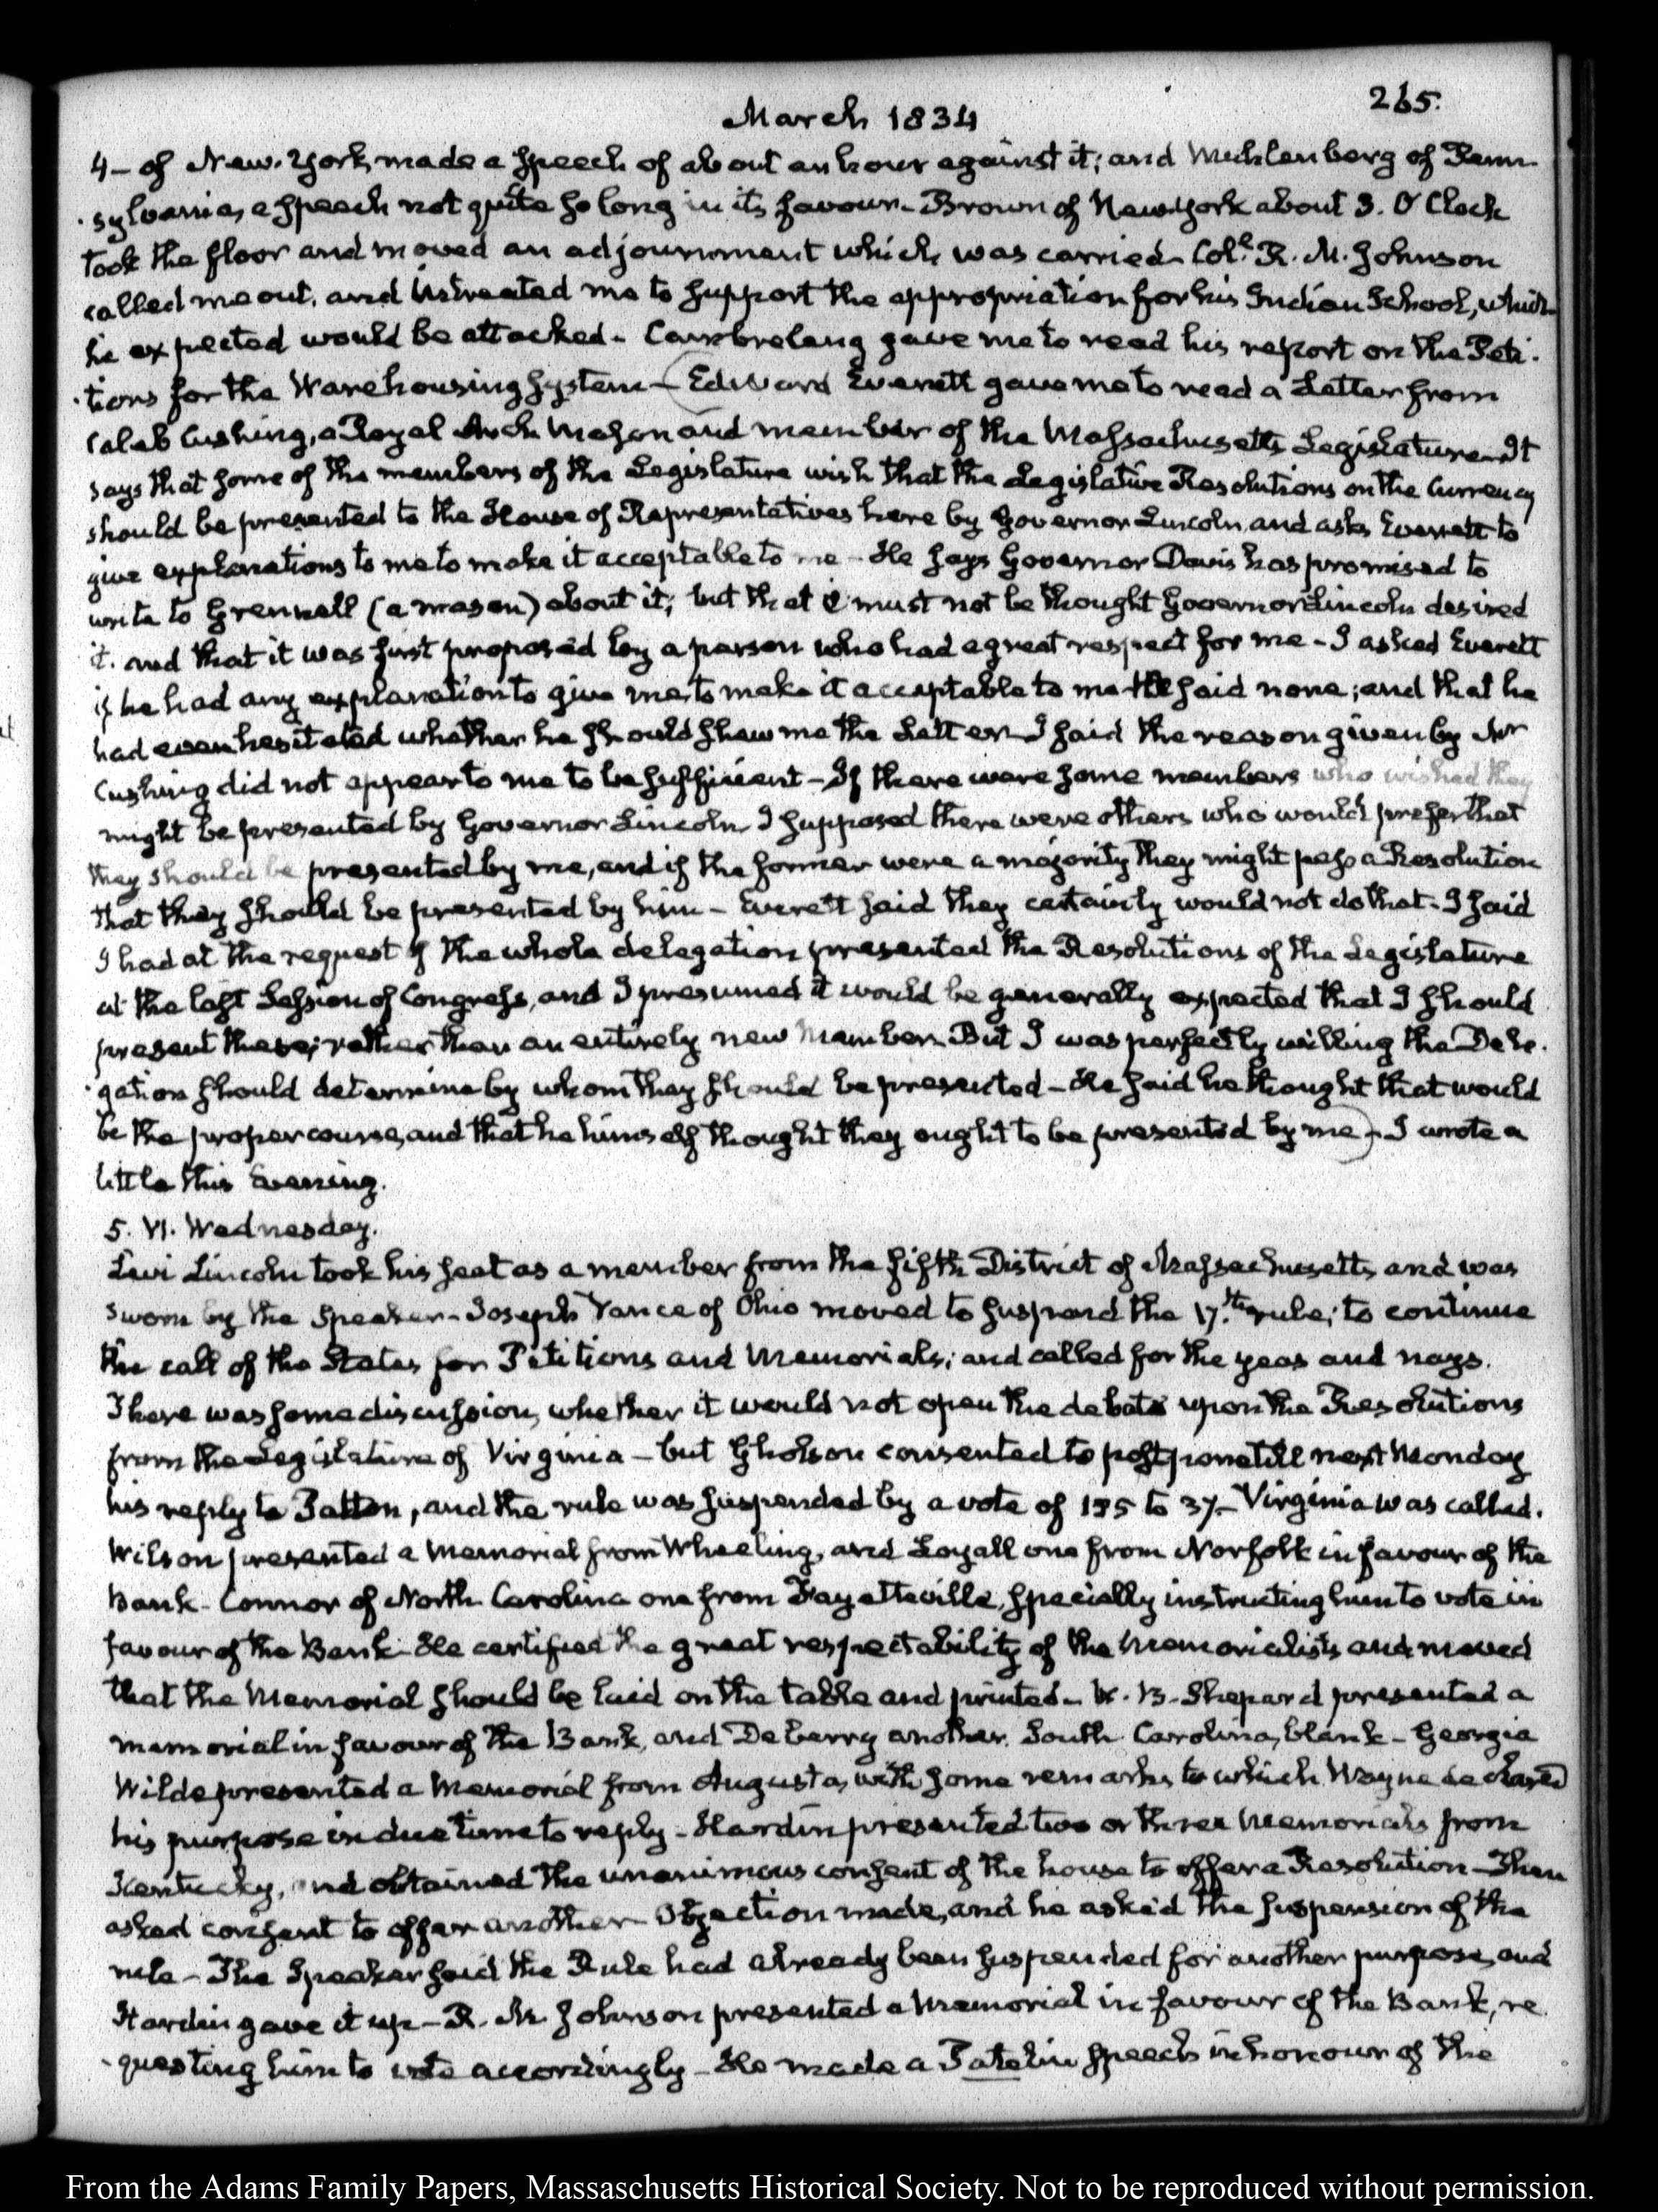 March 1834
265.
4– of New-York, made a Speech of about an hour against it; and Muhlenberg of Penn-
-sylvania, a Speech not quite so long in its favour. Brown of New-York about 3. O'Clock
took the floor and moved an adjournment which was carried– Col.l R. M. Johnson
called me out, and intreated me to support the appropriation for his Indian School, which
he expected would be attacked– Cambreleng gave me to read his report on the Peti-
-tions for the Warehousing System– (Edward Everett gave me to read a Letter from
Caleb Cushing, a Royal Arch Mason and member of the Massachusetts Legislature– It
says that some of the members of the Legislature wish that the Legislative Resolutions on the Currency
should be presented to the House of Representatives here by Governor Lincoln, and asks Everett to
give explanations to me to make it acceptable to me– He says Governor Davis has promised to
write to Grennell (a mason) about it; but that it must not be thought Governor Lincoln desired
it. and that it was first proposed by a person who had a great respect for me– I asked Everett
if he had any explanation to give me, to make it acceptable to me– He said none; and that he
had even hesitated whether he should shew me the Letter– I said the reason given by Mr
Cushing did not appear to me to be sufficient– If there were some members who wished they
might be presented by Governor Lincoln I supposed there were others who would prefer that
they should be presented by me, and if the former were a majority they might pass a Resolution
that they should be presented by him– Everett said they certainly would not do that– I said
I had at the request of the whole delegation presented the Resolutions of the Legislature
at the last Session of Congress, and I presumed it would be generally expected that I should
present these; rather than an entirely new Member. But I was perfectly willing the Dele-
-gation should determine by whom they should be presented– He said he thought that would
be the proper course, and that he himself thought they ought to be presented by me)– I wrote a
little this Evening.
5. VI. Wednesday.
Levi Lincoln took his seat as a member from the fifth District of Massachusetts and was
sworn by the Speaker– Joseph Vance of Ohio moved to suspend the 17.th rule; to continue
the call of the States for Petitions and Memorials; and called for the yeas and nays.
There was some discussion, whether it would not open the debate upon the Resolutions
from the Legislature of Virginia– but Gholson consented to postpone till next Monday
his reply to Patton, and the rule was suspended by a vote of 135 to 37– Virginia was called.
Wilson presented a Memorial from Wheeling, and Loyall one from Norfolk in favour of the
Bank– Connor of North Carolina one from Fayetteville, specially instructing him to vote in
favour of the Bank– He certified the great respectability of the Memorialists and moved
that the Memorial should be laid on the table and printed– W. B. Shepard presented a
memorial in favour of the Bank, and Deberry another. South Carolina, blank– Georgia
Wilde presented a Memorial from Augusta, with some remarks to which Wayne declared
his purpose in due time to reply– Hardin presented two or three Memorials from
Kentucky, and obtained the unanimous consent of the house to offer a Resolution– Then
asked consent to offer another– Objection made, and he asked the suspension of the
rule– The Speaker said the Rule had already been suspended for another purpose, and
Hardin gave it up– R. M. Johnson presented a Memorial in favour of the Bank, re-
-questing him to vote accordingly– He made a Patelin Speech in honour of the
From the Adams Family Papers, Massachusetts Historical Society. Not to be reproduced without permission.